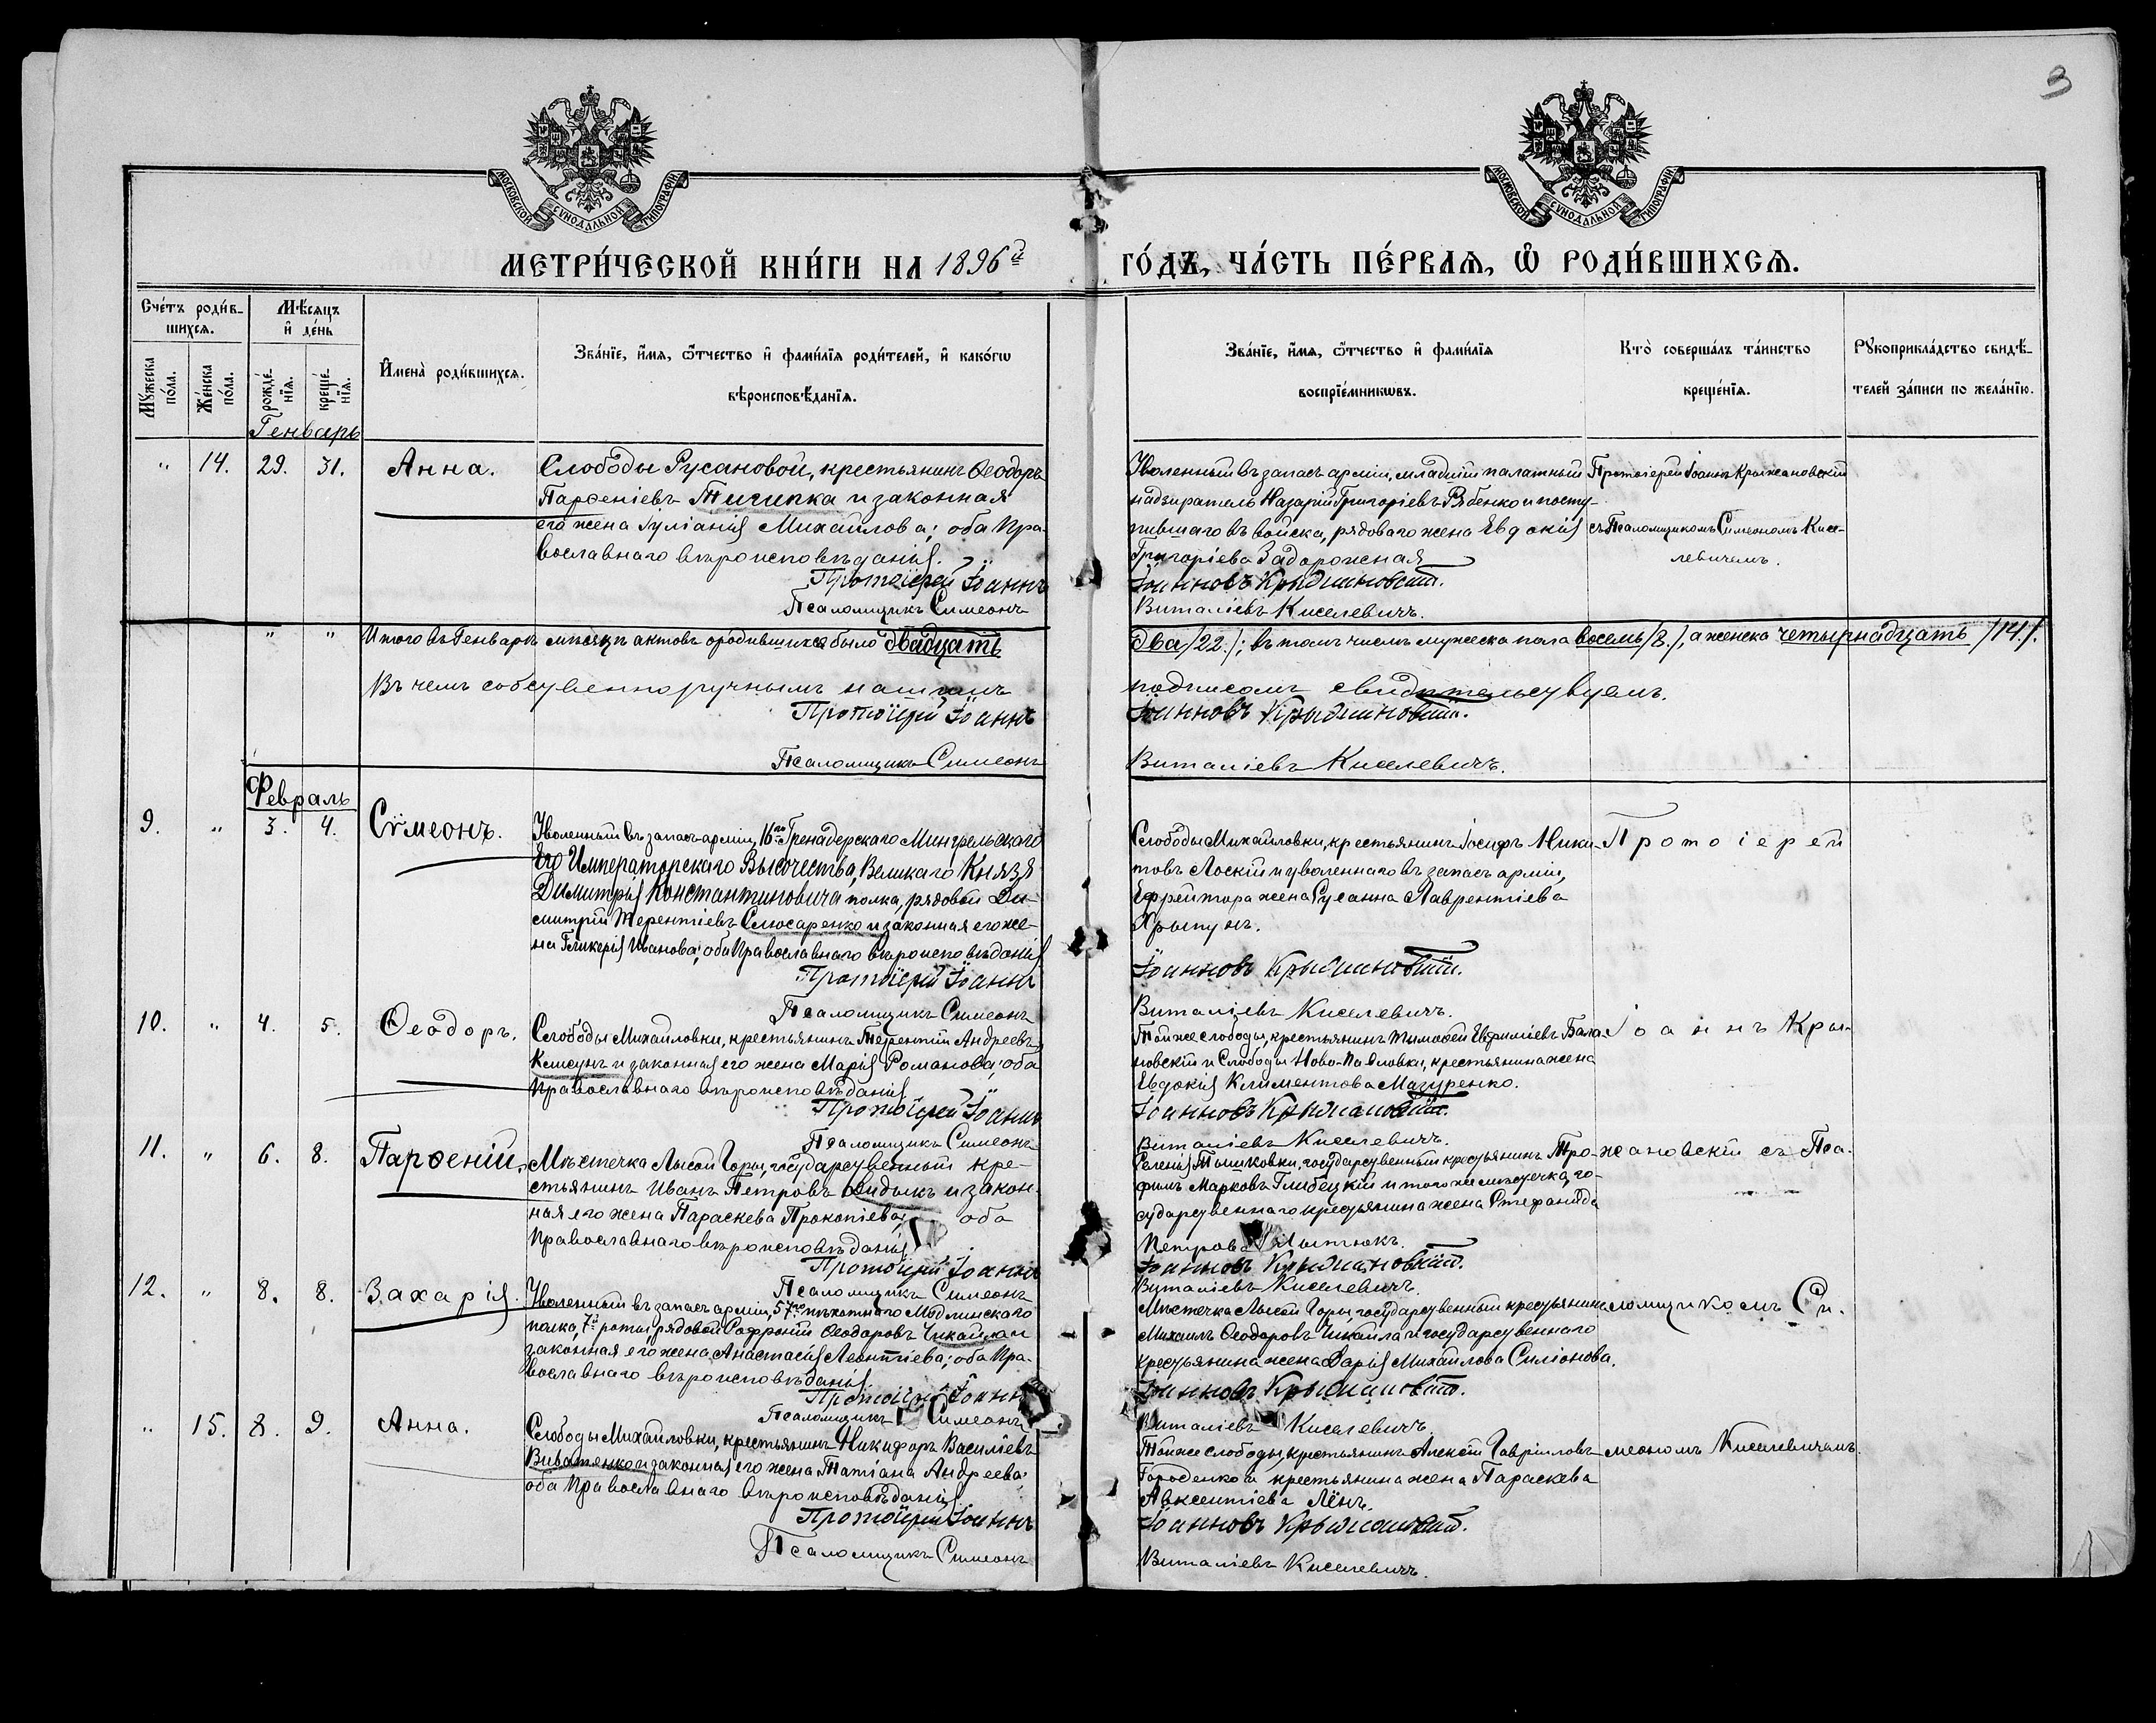 3
МОСКОВСКОЙ СѴНОДАЛЬНОЙ ТИПОГРАФІИ
МОСКОВСКОЙ СѴНОДАЛЬНОЙ ТИПОГРАФІИ
МЕТРИ́ЧЕСКОЙ КНИ́ГИ НА 1896й
ГО́ДЪ, ЧА́СТЬ ПЕ́РВАЯ, Ѽ РОДИ́ВШИХСЯ.
Сче́тъ роди́в-
шихся.
Мѣсяцъ
и҆ де́нь
Мꙋжеска по́ла.
Же́нска по́ла.
рожде́-нїя.
креще́-нїя.
И҆мена̀ роди́вшихся.
Зва́нїе, и҆́мя, ѻ҆́тчество и҆ фами́лїя роди́телей, и҆ како́гѡ
вѣроисповѣ́данїя.
Зва́нїе, и҆́мя, ѻ҆́тчество и҆ фами́лїя
воспрїе́мникѡвъ.
Кто̀ соверша́лъ та́инство
креще́нїя.
Рꙋкоприкла́дство свидѣ́-
телей за́писи по жела́нїю.
Генварь
" 14. 29. 31. Анна.
Слободы Русановой, крестьянинъ Ѳеодоръ
Парѳеніевъ Тигипка и законная
его жена Іуліанія Михайлова; оба Пра-
вославнаго вѣроисповѣданія.
Протоіерей Іоаннъ
Псаломщикъ Симеонъ
Уволенный въ запасъ арміи, младшій палатный
надзиратель Назарій Григоріевъ Рябенко и посту-
пившаго въ войска, рядоваго жена Евдокія
Григоріева Задорожная
Іоанновъ Крыжановскій.
Виталіевъ Киселевичъ.
Протоіерей Іоаннъ Крыжановскій
съ Псаломщикомъ Симеономъ Кисе-
левичемъ.
" " Итого въ Генварѣ мѣсяцѣ актовъ о родившихся было двадцать
два /22./; въ томъ числѣ мужеска пола восемь /8./, а женска четырнадцать /14./.
Въ чемъ собственноручнымъ нашимъ
подписомъ свидѣтельствуемъ.
Протоіерей Іоаннъ
Іоанновъ Крыжановскій.
Псаломщикъ Симеонъ
Виталіевъ Киселевичъ.
Февраль
9. " 3. 4. Сѵмеонъ.
Уволенный въ запасъ арміи, 16го Гренадерскаго Мингрельскаго
Его Императорскаго Высочества, Великаго Князя
Димитрія Константиновича полка, рядовый Ди-
митрій Терентіевъ Слюсаренко и законная его же-
на Гликерія Иванова; оба Православнаго вѣроисповѣданія
Протоіерей Іоаннъ
Псаломщикъ Симеонъ
Слободы Михайловки, крестьянинъ Іосифъ Ники-
товъ Лоскій и уволеннаго въ запасъ арміи,
Ефрейтора жена Сусанна Лаврентіева
Хрыпунъ.
Іоанновъ Крыжановскій.
Виталіевъ Киселевичъ.
Протоіерей
10. " 4. 5. Ѳеодоръ.
Слободы Михайловки, крестьянинъ Терентій Андреевъ
и законная его жена Марія Романова; оба
Православнаго вѣроисповѣданія
Протоіерей Іоаннъ
Псаломщикъ Симеонъ
Той же слободы, крестьянинъ Тимоѳей Евфиміевъ Бала-
новскій и Слободы Ново-Павловки, крестьянина жена
Евдокія Климентова Мазуренко.
Іоанновъ Крыжановскій.
Виталіевъ Киселевичъ.
Іоаннъ Кры-
11. " 6. 8. Парѳеній.
Мѣстечка Лысой Горы, государственный кре-
стьянинъ Иванъ Петровъ и закон-
ная его жена Параскева Прокопіева; оба
Православнаго вѣроисповѣданія
Протоіерей Іоаннъ
Псаломщикъ Симеонъ
Селенія Тышковки, государственный крестьянинъ Тро-
фимъ Марковъ Глибецкій и того же мѣстечка, го-
сударственнаго крестьянина жена Стефанида
Петрова
Іоанновъ Крыжановскій.
Виталіевъ Киселевичъ.
жановскій съ Пса-
12. " 8. 8. Захарія.
Уволенный въ запасъ арміи, 57го пѣхотнаго Модлинскаго
полка, 7й роты, рядовой Софроній Ѳеодоровъ Чикайла и
законная его жена Анастасія Леонтіева; оба Пра-
вославнаго вѣроисповѣданія.
Протоіерей Іоаннъ
Псаломщикъ Симеонъ
Мѣстечка Лысой Горы, государственный крестьянинъ
Михаилъ Ѳеодоровъ Чикайла и государственнаго
крестьянина жена Дарія Михайлова Силіонова.
Іоанновъ Крыжановскій.
Виталіевъ Киселевичъ.
ломщикомъ Си-
" 15. 8. 9. Анна.
Слободы Михайловки, крестьянинъ Никифоръ Василіевъ
и законная его жена Татіана Андреева;
оба Православнаго вѣроисповѣданія.
Протоіерей Іоаннъ
Псаломщикъ Симеонъ
Той же слободы, крестьянинъ Алексій Гавріиловъ
Городенко и крестьянина жена Параскева
Авксентіева Лёнъ.
Іоанновъ Крыжановскій.
Виталіевъ Киселевичъ.
меономъ Киселевичемъ.